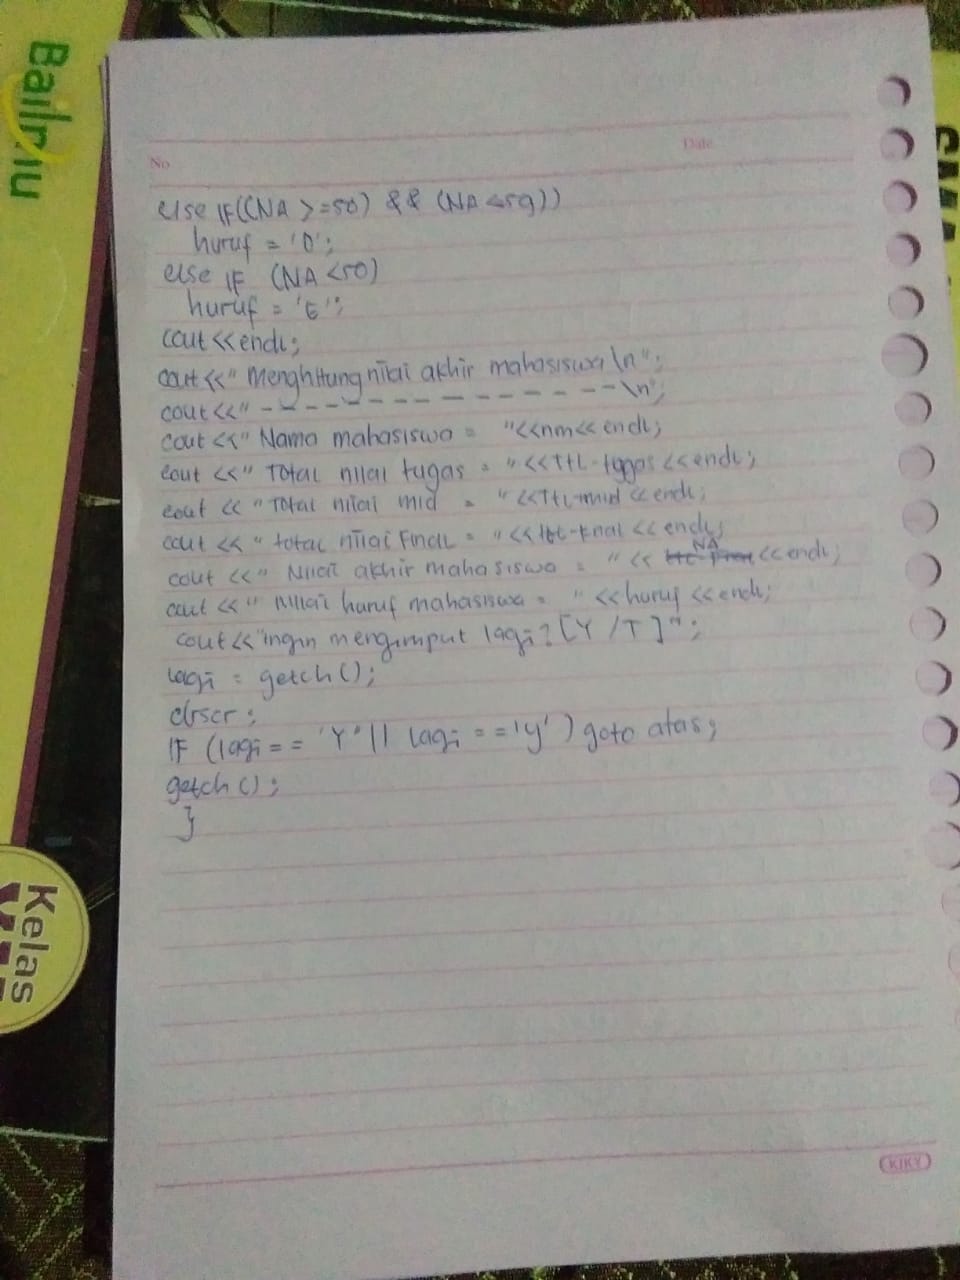 Bailmu
SMA
No
Date
else IF((NA >=50) && (NA <59))
huruf = 'D';
else IF (NA <50)
huruf = 'E';
cout <<endl;
cout <<" Menghitung nilai akhir mahasiswa \n";
cout <<" - - - - - - - - - - - - - - - - \n";
cout <<" Nama mahasiswa = "<<nm<< endl;
cout <<" Total nilai tugas = "<<ttl-tugas <<endl;
cout << " Total nilai mid = "<<ttl-mid << endl;
cout << " total nilai Final = "<<ttl-final << endl;
cout <<" Nilai akhir mahasiswa = " << NA <<endl;
cout <<" Nilai huruf mahasiswa = " <<huruf <<endl;
cout <<"ingin mengimput lagi? [Y /T ]";
lagi = getch ();
clrscr ;
IF (lagi = = 'Y' || lagi = = 'y' ) goto atas;
getch ();
}
Kelas
KIKY